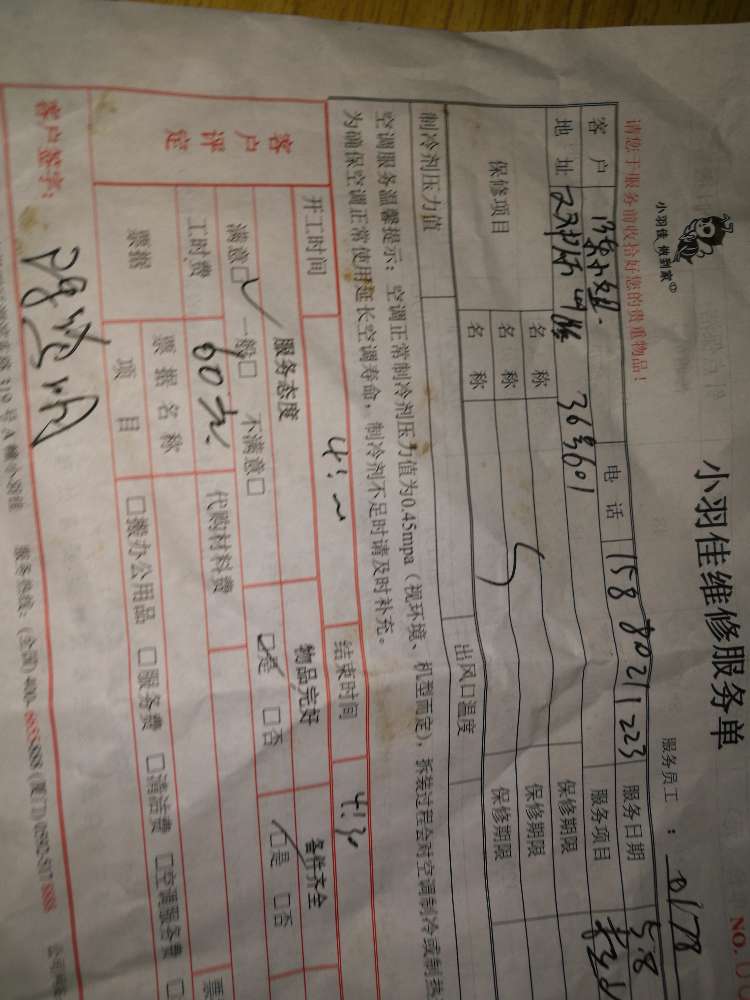 小羽佳 做到家
小羽佳维修服务单
NO.
请您于服务前收拾好您的贵重物品！
服务员工：
客户 陈小姐 电话 15880211223 服务日期 5.8
地址 服务项目
保修项目 名称 保修期限
名称 保修期限
名称 保修期限
制冷剂压力值 出风口温度
空调服务温馨提示：空调正常制冷剂压力值为0.45mpa（视环境、机型而定），拆装过程会对空调制冷或制热
为确保空调正常使用延长空调寿命，制冷剂不足时请及时补充。
开工时间 结束时间
客户评定 服务态度 物品完好 备件齐全
满意□ 一般□ 不满意□ □是 □否 □是 □否
工时费 60元 代购材料费
票据 票据名称 票
项目 □搬办公用品 □服务费 □清洁费 □空调服务费 □
客户签字：
319号A幢小羽佳 服务热线：(全国)400-6655-888 (厦门)0592-5178888